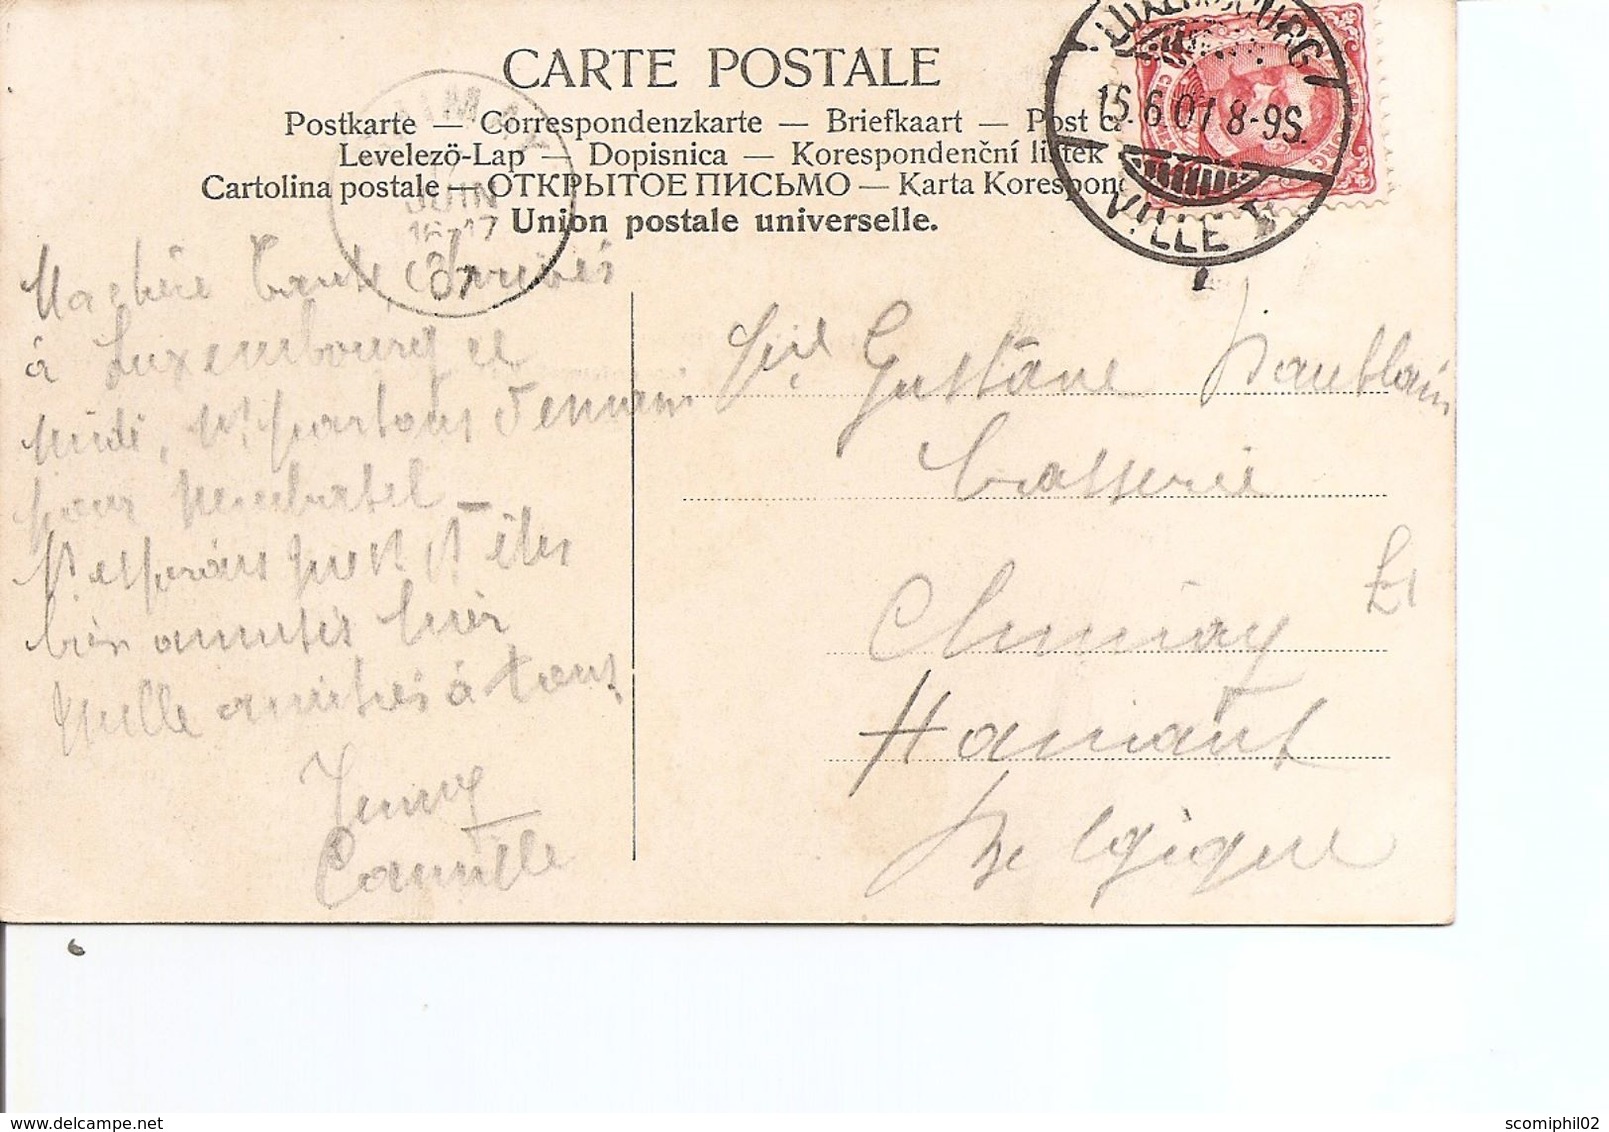 CARTE POSTALE
Postkarte — Correspondenzkarte — Briefkaart — Post
Levelezö-Lap — Dopisnica — Korespondenční lístek
Cartolina postale — ОТКРЫТОЕ ПИСЬМО — Karta Korespon
Union postale universelle.
LUXEMBOURG
15.6.07 8-9S.
VILLE
CHIMAY
JUIN
16-17
07
Ma chère Tante, Arrivés
à Luxembourg
midi, Ns partons demain
pour
Ns espérons que vs vs êtes
bien amusés hier
Mille amitiés à tous
Jenny
Camille
Gustave
brasserie
Chimay
Hainaut
Belgique
scomiphil02